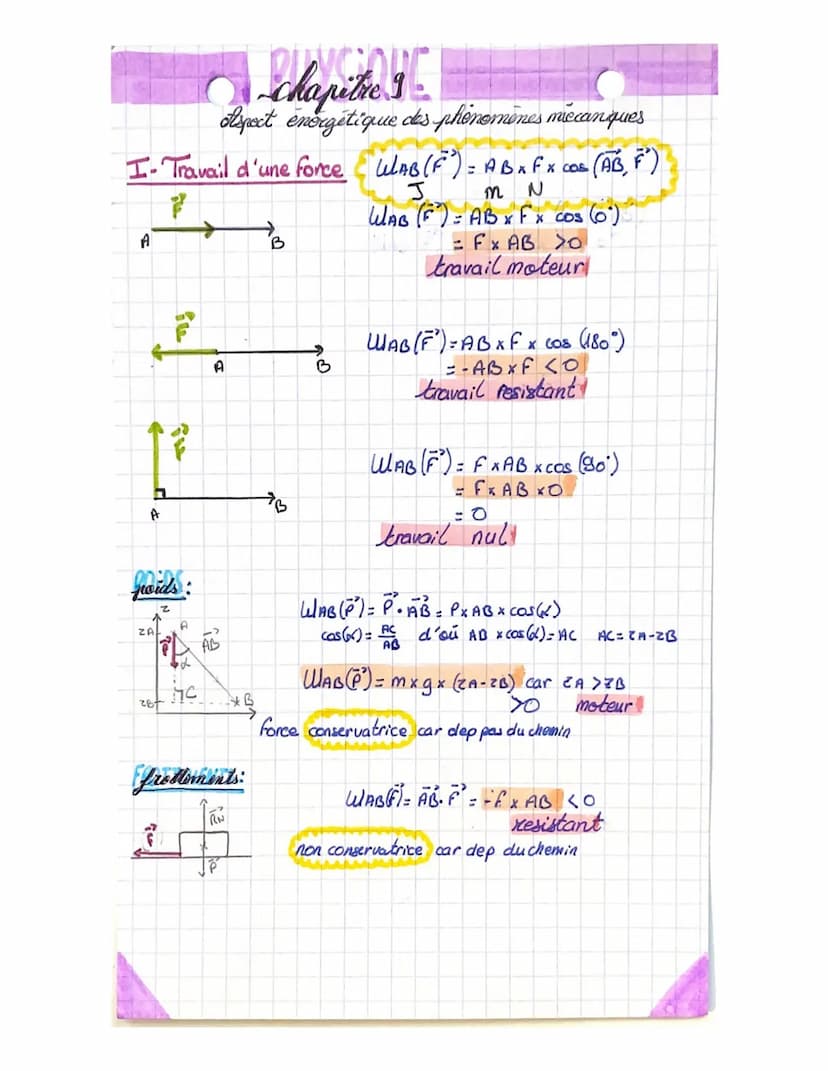 PHYSIQUE
chapitre 9
Aspect énergétique des phénomènes mécaniques
I- Travail d'une force
WAB(F→) = AB x F x cos (AB→, F→)
J m N
F→
A B
WAB (F→) = AB x F x cos (0°)
= F x AB >0
travail moteur
F→
A B
WAB(F→) = AB x F x cos (180°)
= - AB x F <0
travail resistant
F→
A B
WAB(F→) = F x AB x cos (90°)
= F x AB x 0
= 0
travail nul
POIDS
poids :
z
zA A
P→ AB→
α
C
zB B
WAB(P→) = P→ • AB→ = P x AB x cos(α)
cos(α) = AC/AB d'où AB x cos(α) = AC AC = zA - zB
WAB(P→) = m x g x (zA - zB) car zA > zB
>0 moteur
force conservatrice car dep pas du chemin
frottements :
F→ RN→
P→
WAB(F→) = AB→ . F→ = - F x AB <0
resistant
non conservatrice car dep du chemin